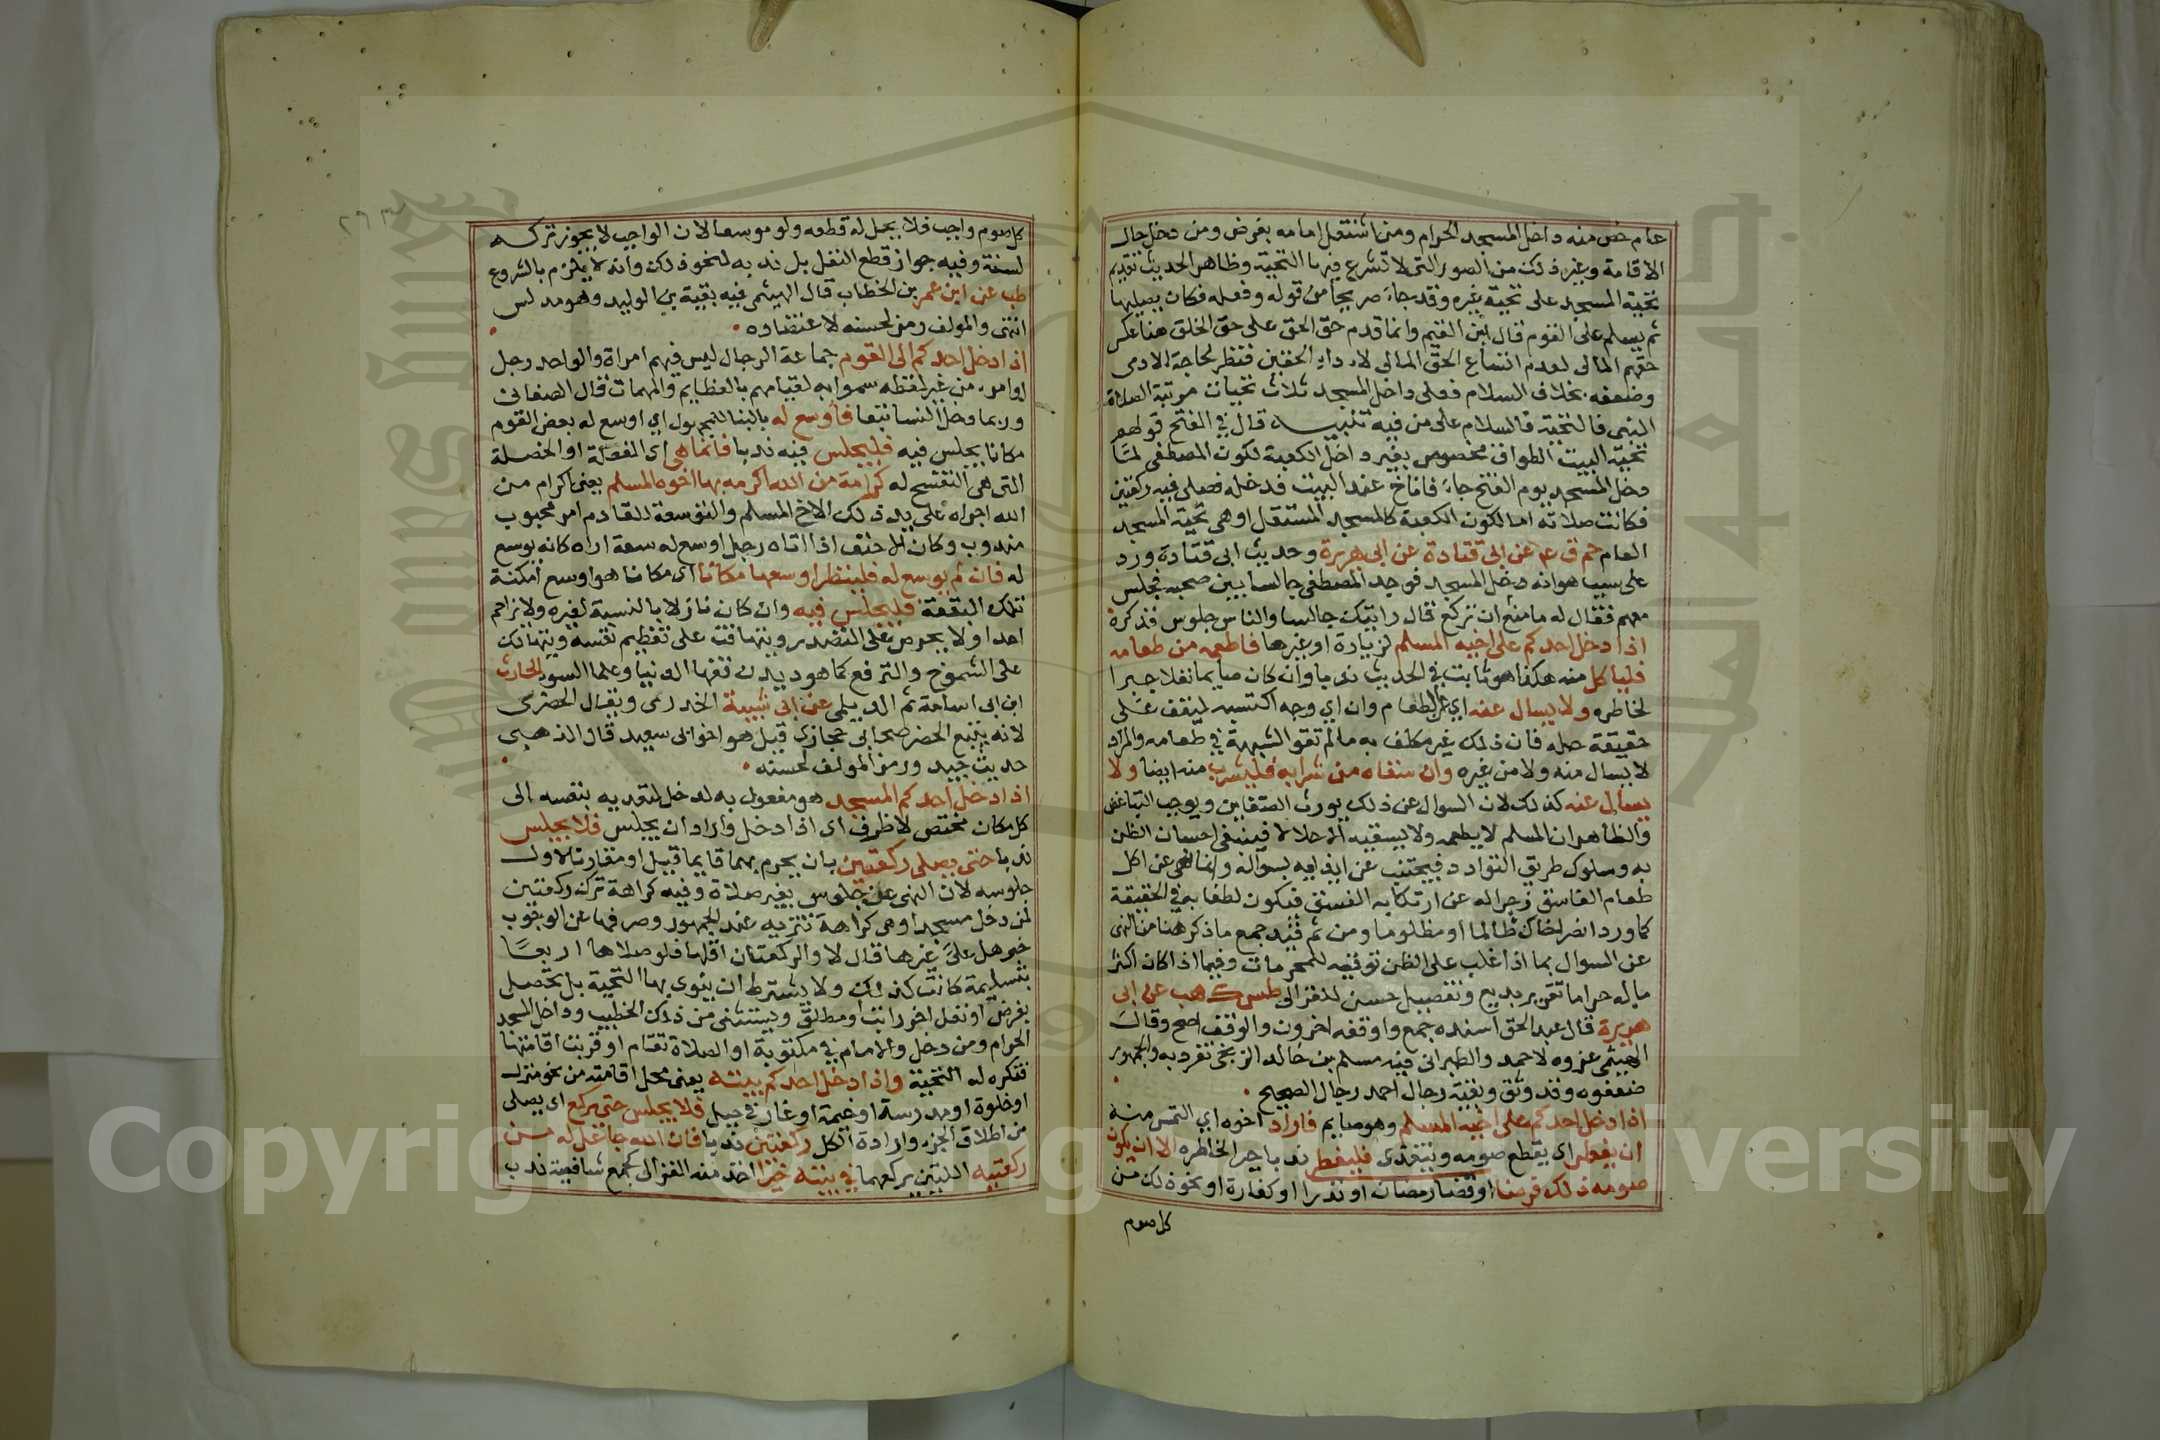 عام خص منه داخل المسجد الحرام ومن اشتغل امامه بفرض ومن دخل حال
الاقامة وغير ذلك من الصور التى لا تشرع فيها التحية وظاهر الحديث تقديم
تحية المسجد على تحية غيره وقد جاء صريحا من قوله وفعله فكان يصليها
ثم يسلم على القوم قال ابن القيم وانما قدم حق الحق على حق الخلق هنا عكس
حقهم المالى لعدم اتساع الحق المالى لاداء الحقين فنظر لحاجة الادمى
وضعفه بخلاف السلام فعلى داخل المسجد ثلاث تحيات مرتبة الصلاة على
النبى فالتحية فالسلام على من فيه تنبيه قال في الفتح قولهم
تحية البيت الطواف مخصوص بغير داخل الكعبة لكون المصطفى لما
دخل المسجد يوم الفتح جاء فاناخ عند البيت فدخله فصلى فيه ركعتين
فكانت صلاته اما لكون الكعبة كالمسجد المستقل او هى تحية المسجد
العام حم ق ع عن ابى قتادة عن ابى هريرة وحديث ابى قتادة ورد
على سبب هو انه دخل المسجد فوجد المصطفى جالسا بين صحبه فجلس
معهم فقال له ما منع ان تركع قال رايتك جالسا والناس جلوس فذكره
اذا دخل احدكم على اخيه المسلم لزيارة او غيرها فاطعمه من طعامه
فلياكل منه هكذا هو ثابت في الحديث ندبا وان كان صايما نفلا جبرا
لخاطره ولا يسال عنه اي عن الطعام وان اي وجه اكتسبه ليقف على
حقيقة حله فان ذلك غير مكلف به ما لم تقو الشبهة في طعامه والمراد
لا يسال منه ولا من غيره وان سقاه من شرابه فليشرب منه ايضا ولا
يسأل عنه كذلك لان السوال عن ذلك يورث الضغاين ويوجب التباغض
والظاهر ان المسلم لا يطعمه ولا يسقيه الا حلالا فينبغى احسان الظن
به وسلوك طريق التوادد فيجتنب عن ايذايه بسواله وانما نهى عن اكل
طعام الفاسق زجرا له عن ارتكابه الفسق فيكون لطفا به في الحقيقة
كما ورد انصر اخاك ظالما او مظلوما ومن ثم قيد جمع ما ذكر هنا من النهى
عن السوال بما اذا غلب على الظن توقيه للمحرمات وفيما اذا كان اكثر
ماله حراما تقرير بديع وتفصيل حسن للغزالى طس ك هب عن ابى
هريرة قال عبد الحق اسنده جمع واوقفه اخرون والوقف اصح وقال
الهيثمى عزوه لاحمد والطبرانى فيه مسلم بن خالد الزنجى تفرد به والجمهور
ضعفوه وقد وثق وبقية رجال احمد رجال الصحيح
اذا دخل احدكم على اخيه المسلم وهو صايم فاراد اخوه اي التمس منه
ان يفطر اى يقطع صومه ويتغذى فليفطر ندبا جبرا لخاطره الا ان يكون
صومه ذلك فرضا او قضا رمضان او نذرا او كفارة او نحو ذلك من
كل صوم
كل صوم واجب فلا يحل له قطعه ولو موسعا لان الواجب لا يجوز تركه
لسنة وفيه جواز قطع النفل بل ندبه لنحو ذلك وانه لا يلزم بالشروع
طب عن ابن عمر بن الخطاب قال الهيثمى فيه بقية بن الوليد وهو مدلس
انتهى والمولف رمز لحسنه لاعتضاده
اذا دخل احدكم الى القوم جماعة الرجال ليس فيهم امراة والواحد رجل
او امرء من غير لفظه سموا به لقيامهم بالعظايم والمهمات قال الصغانى
وربما دخل النسا تبعا فأوسع له بالبنا للمجهول اي اوسع له بعض القوم
مكانا يجلس فيه فليجلس فيه ندبا فانما هى اى الفعلة او الخصلة
التى هى التفسح له كرامة من الله اكرمه بها اخوه المسلم يعنى اكرام من
الله اجراه على يد ذلك الاخ المسلم والتوسعة للقادم امر محبوب
مندوب وكان الاحنف اذا اتاه رجل اوسع له سعة اراه كانه يوسع
له فان لم يوسع له فلينظر اوسعها مكانا اى مكانا هو اوسع امكنة
تلك البقعة فليجلس فيه وان كان نازلا بالنسبة لغيره ولا يزاحم
احدا ولا يحرص على التصدر ويتهافت على تعظيم نفسه ويتهالك
على الشموخ والترفع كما هو ديدن فقها الدنيا وعلما السوء الحارث
ابن ابى اسامة ثم الديلمى عن ابى شيبة الخدرى ويقال الخضرى
لانه يتبع الخضر صحابى حجازى قيل هو اخو ابى سعيد قال الذهبى
حديث جيد ورمز المولف لحسنه
اذا دخل احدكم المسجد هو مفعول به لدخل لتعديه بنفسه الى
كل مكان مختص لا ظرف اى اذا دخل واراد ان يجلس فلا يجلس
ندبا حتى يصلى ركعتين بان يحرم بهما قايما قبيل او مقارنا لاول
جلوسه لان النهى عن جلوس بغير صلاة وفيه كراهة ترك ركعتين
لمن دخل مسجدا وهى كراهة تنزيه عند الجمهور وصرفها عن الوجوب
خبر هل على غيرها قال لا والركعتان اقلها فلو صلاها اربعا
بتسليمة كانت كذلك ولا يشترط ان ينوى بها التحية بل تحصل
بفرض او نفل اخر راتب او مطلق ويستثنى من ذلك الخطيب وداخل المسجد
الحرام ومن دخل والامام في مكتوبة او الصلاة تقام او قربت اقامتها
فتكره له التحية واذا دخل احدكم بيته يعنى محل اقامته من نحو منزل
او خلوة او مدرسة او خيمة او غار في جبل فلا يجلس حتى يركع اى يصلى
من اطلاق الجزء وارادة الكل ركعتين ندبا فان الله جاعل له من
ركعتيه اللتين يركعهما في بيته خيرا اخذ منه الغزالى كجمع شافعية ندب